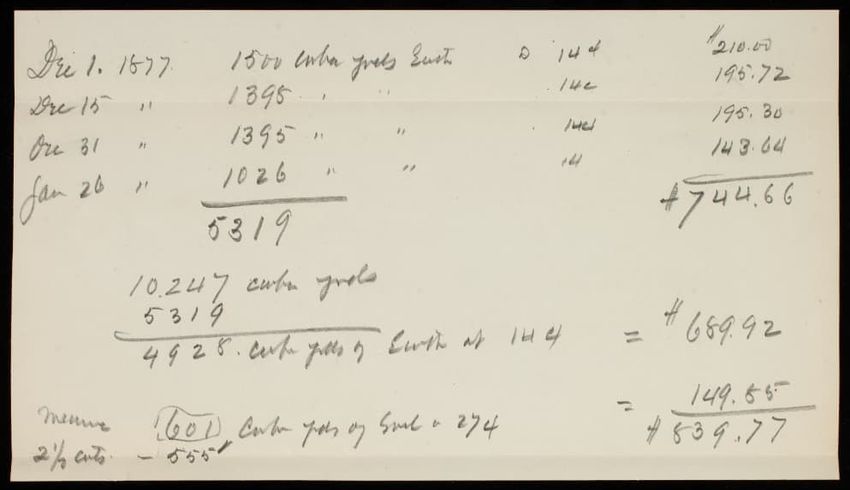 Dec 1. 1877. 1500 cubic yards Earth @ 14¢ $210.00
Dec 15 " 1398 " " 14¢ 195.72
Dec 31 " 1395 " " 14¢ 195.30
Jan 26 " 1026 " " 14 143.64
5319 $744.66
10.247 cubic yards
5319
4928. cubic yards of Earth at 14¢ = $689.92
601 Cubic yards of 27¢ = 149.85
2½ cuts. - 555 $839.77